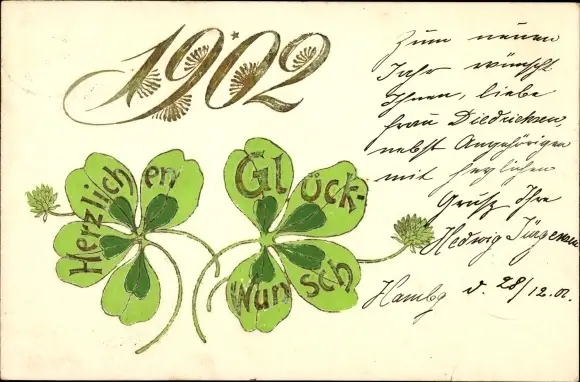 1902
Herzlichen
Glück-
Wunsch
Zum neuen
Jahr wünscht
Ihnen, liebe
Frau Diedrichsen,
nebst Angehörigen
mit herzlichem
Gruß Ihre
Hedwig Jürgensen
Hambg d. 28/12.01.